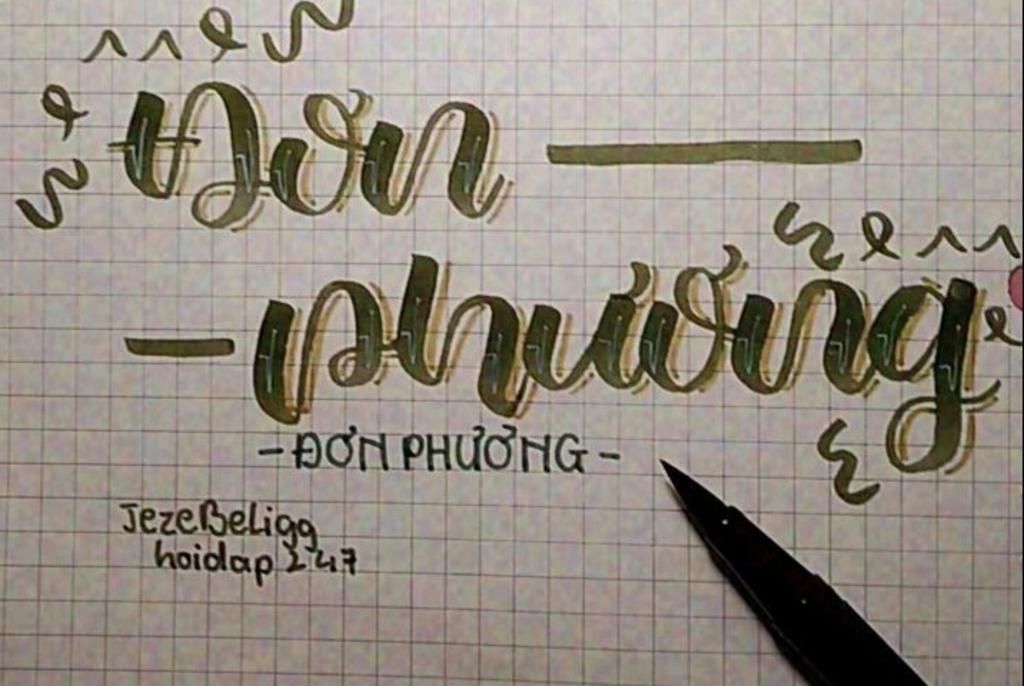 Đơn
phương
- ĐƠN PHƯƠNG -
JezeBeLigg
hoidap 247